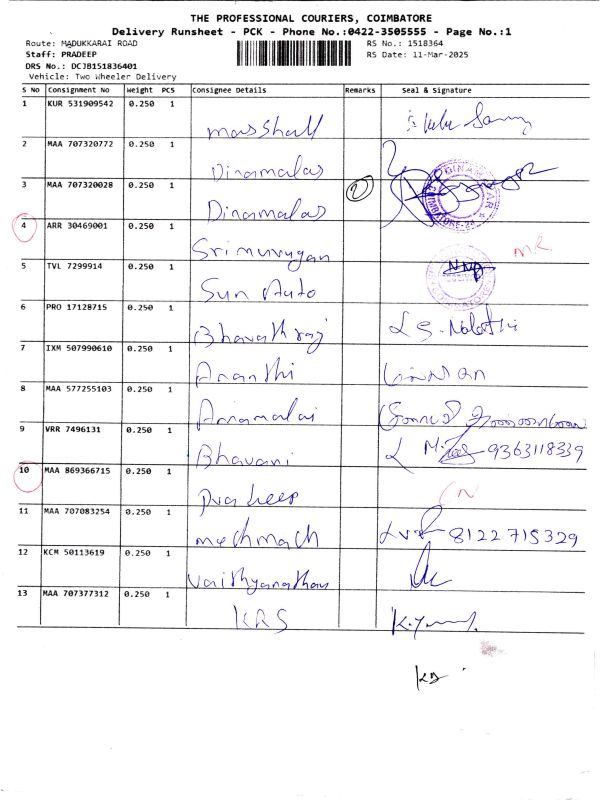 THE PROFESSIONAL COURIERS, COIMBATORE
Delivery Runsheet - PCK - Phone No.:0422-3505555 - Page No.:1
Route: MADUKKARAI ROAD RS No.: 1518364
Staff: PRADEEP RS Date: 11-Mar-2025
DRS No.: DCJB151836401
Vehicle: Two Wheeler Delivery
S No Consignment No Weight PCS Consignee Details Remarks Seal & Signature
1 KUR 531909542 0.250 1
Marshall
2 MAA 707320772 0.250 1
Dinamalar
3 MAA 707320028 0.250 1 2
Dinamalar
4 ARR 30469001 0.250 1
Srimurugan
5 TVL 7299914 0.250 1
Sun Auto
6 PRO 17128715 0.250 1
Bhavathraj
7 IXM 507990610 0.250 1
Ananthi
8 MAA 577255103 0.250 1
Annamalai
9 VRR 7496131 0.250 1
Bhavani 9363118339
10 MAA 869366715 0.250 1
Pradeep
11 MAA 707083254 0.250 1
mechmach 8122 715329
12 KCM 50113619 0.250 1
Vaithyanathan
13 MAA 707377312 0.250 1
KRS